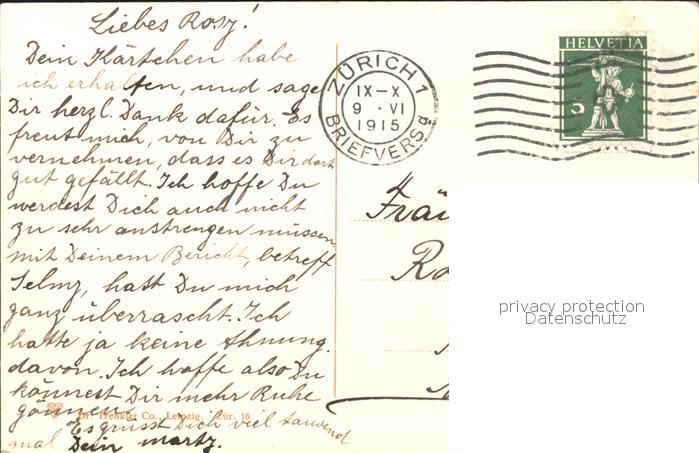 Liebes Rosy!
Dein Kärtchen habe
ich erhalten, und sage
Dir herzl. Dank dafür. Es
freut mich, von Dir zu
vernehmen, dass es Dir dort
gut gefällt. Ich hoffe Du
werdest Dich auch nicht
zu sehr anstrengen müssen.
mit Deinem Bericht, betreff
Selmy, hast Du mich
ganz überrascht. Ich
hatte ja keine Ahnung
davon. Ich hoffe also Du
könnest Dir mehr Ruhe
gönnen.
Es grüsst Dich viel tausend
mal Dein Martz.
Dr. Trenkler Co., Leipzig. Zür. 16
ZÜRICH 1
IX–X
9 · VI
1915
BRIEFVERSD
HELVETIA
5
Fräu
Ro
privacy protection
Datenschutz